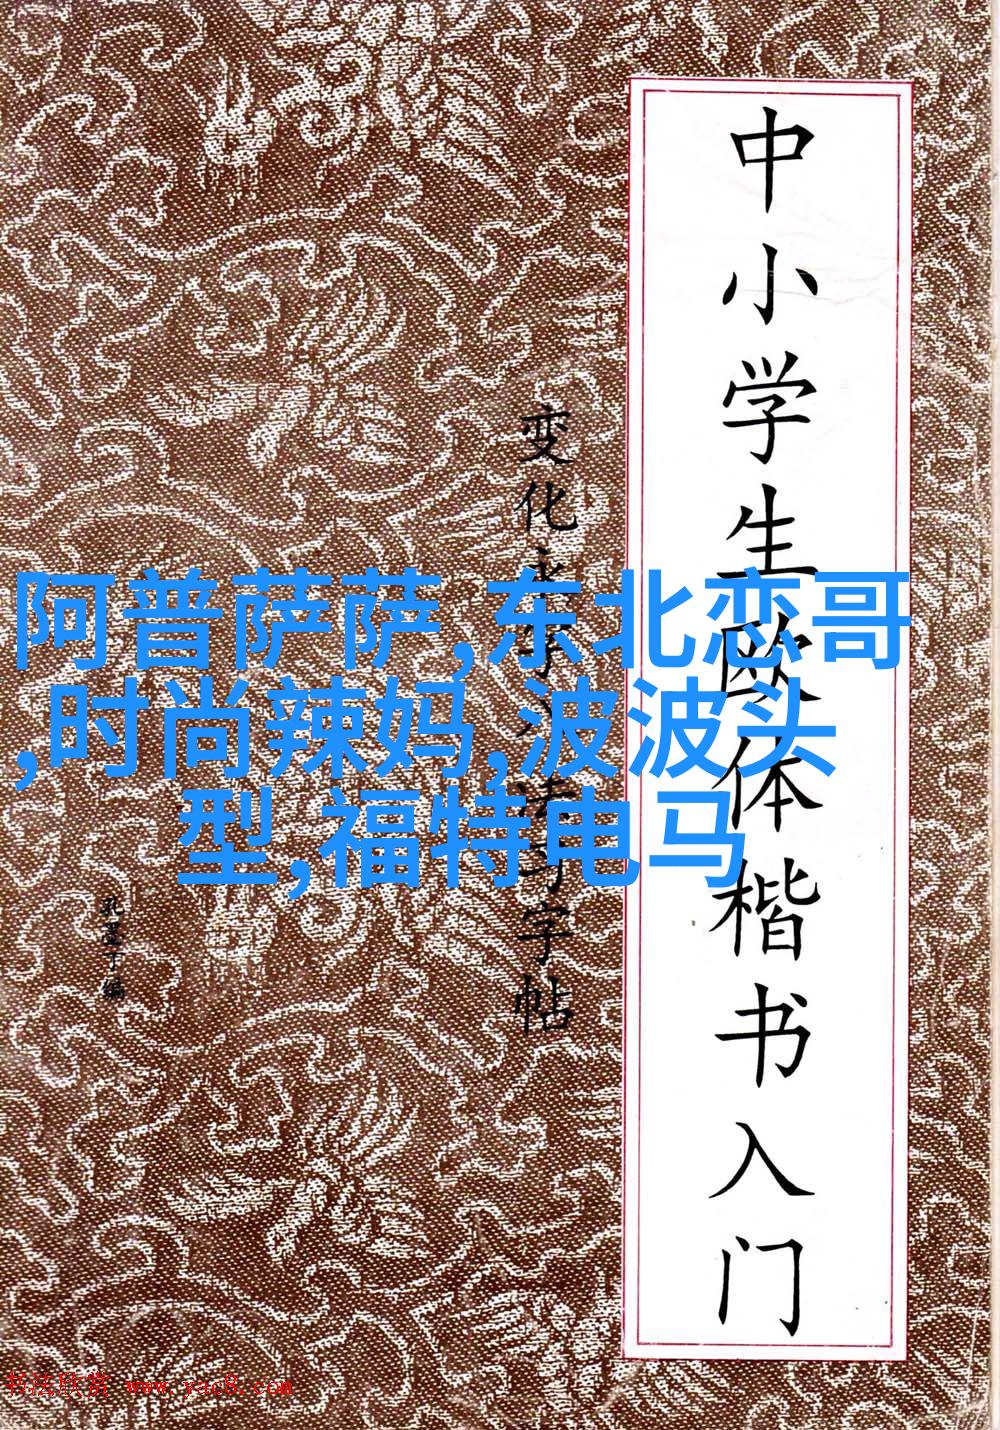 中小学生欧体楷书入门
变化永字八法习字帖
孔墨丁编
阿普萨萨,东北恋哥
,时尚辣妈,波波头
型,福特电马
书法欣赏 www.yac8.com